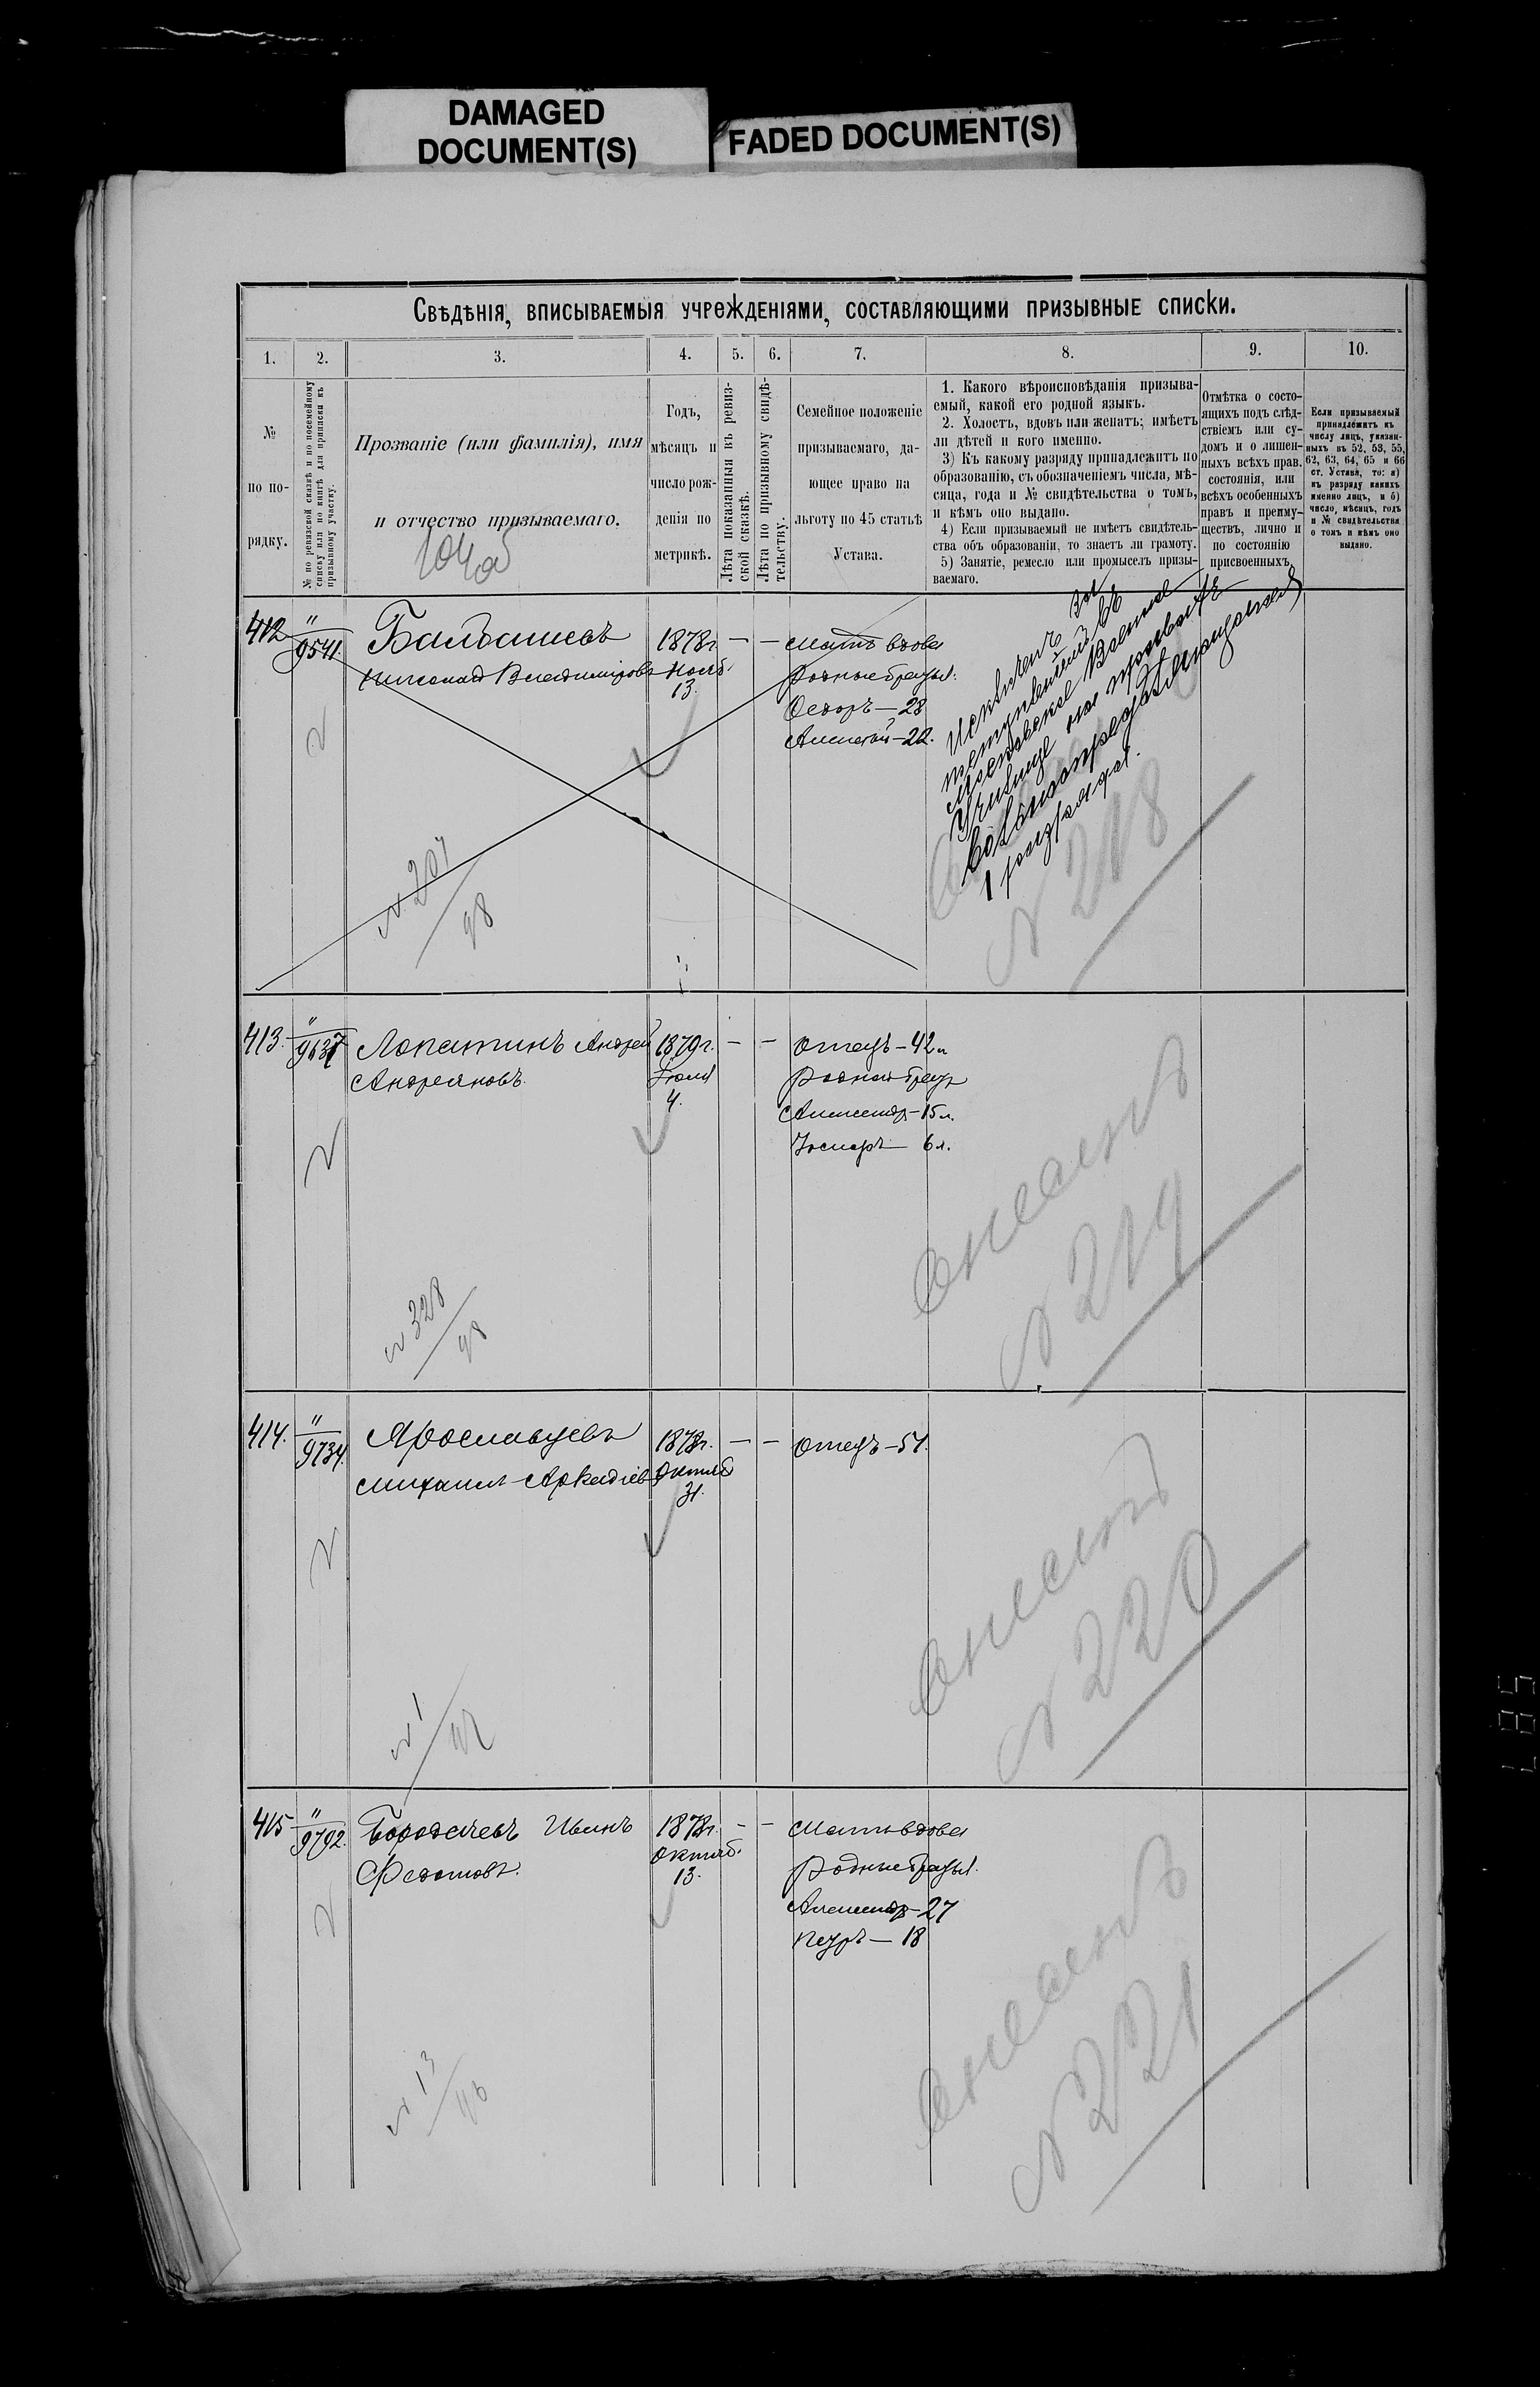 DAMAGED
DOCUMENT(S)
FADED DOCUMENT(S)
Свѣдѣнія, вписываемыя учрежденіями, составляющими призывные списки.
1.
2.
3.
4.
5.
6.
7.
8.
9.
10.
№
по по-
рядку.
№ по ревизской сказкѣ и по посемейному
списку или по книгѣ для приписки къ
призывному участку.
Прозваніе (или фамилія), имя
и отчество призываемаго.
Годъ,
мѣсяцъ и
число рож-
денія по
метрикѣ.
Лѣта показанныя въ ревиз-
ской сказкѣ.
Лѣта по призывному свидѣ-
тельству.
Семейное положеніе
призываемаго, да-
ющее право на
льготу по 45 статьѣ
Устава.
1. Какого вѣроисповѣданія призыва-
емый, какой его родной языкъ.
2. Холостъ, вдовъ или женатъ; имѣетъ
ли дѣтей и кого именно.
3) Къ какому разряду принадлежитъ по
образованію, съ обозначеніемъ числа, мѣ-
сяца, года и № свидѣтельства о томъ,
и кѣмъ оно выдано.
4) Если призываемый не имѣетъ свидѣтель-
ства объ образованіи, то знаетъ ли грамоту.
5) Занятіе, ремесло или промыселъ призы-
ваемаго.
Отмѣтка о состо-
ящихъ подъ слѣд-
ствіемъ или су-
домъ и о лишен-
ныхъ всѣхъ прав.
состоянія, или
всѣхъ особенныхъ
правъ и преиму-
ществъ, лично и
по состоянію
присвоенныхъ.
Если призываемый
принадлежитъ къ
числу лицъ, указан-
ныхъ въ 52, 53, 55,
62, 63, 64, 65 и 66
ст. Устава, то: а)
къ разряду какихъ
именно лицъ, и б)
число, мѣсяцъ, годъ
и № свидѣтельства
о томъ и кѣмъ оно
выдано.
412
"
9541.
Владиміровъ
1878г.
Нояб.
13.
— —
Мать вдова
Родные братья:
Ѳедоръ — 28
Алексѣй — 22.
Исключенъ за
Московское Военное
Училище на правахъ
1 разряда.
№ 207
98
№ 218
413.
"
Лопатинъ Андрей
Андреяновъ.
1879г.
Іюля
4.
— —
Отецъ — 42
Александр — 15 л.
6 л.
№ 328
98
№ 219
414.
"
9734.
Ярославцевъ
Михаилъ Аркадіевъ
1878г.
Октяб
31.
— —
Отецъ — 51.
№ 1
№ 220
415
"
9792.
Бородачевъ Иванъ
Федотовъ.
1878г.
Октяб.
13.
— —
Мать вдова
Родные братья.
Александр — 27
Петръ — 18
№ 13
№ 221